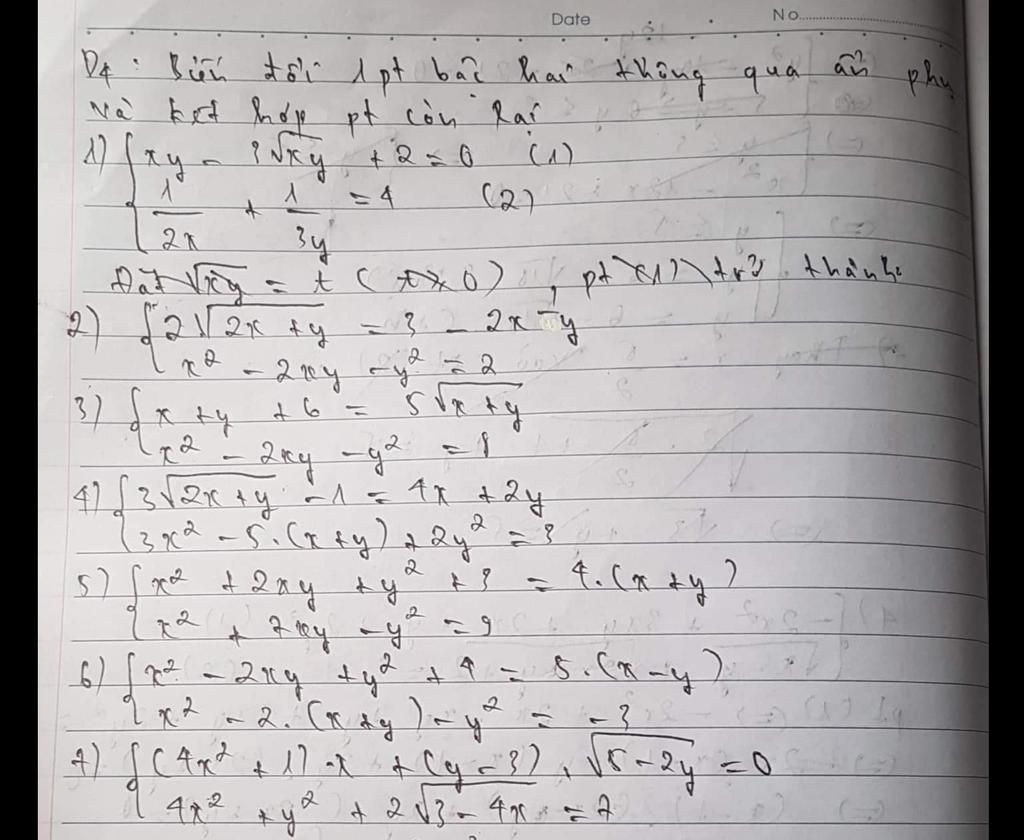 Date No
D4: Biến đổi 1 pt bậc hai thông qua ẩn phụ
Và kết hợp pt còn lại
1) { xy - 3√xy + 2 = 0 (1)
1/2x + 1/3y = 4 (2)
Đặt √xy = t (t ≥ 0), pt (1) trở thành:
2) { 2√2x + y = 3 - 2x - y
x² - 2xy - y² = 2
3) { x + y + 6 = 5√x + y
x² - 2xy - y² = 1
4) { 3√2x + y - 1 = 4x + 2y
3x² - 5.(x + y) + 2y² = 3
5) { x² + 2xy + y² + 3 = 4.(x + y)
x² + 7xy - y² = 9
6) { x² - 2xy + y² + 4 = 5.(x - y)
x² - 2.(x + y) - y² = -3
7) { (4x² + 1).x + (y - 3).√5 - 2y = 0
4x² + y² + 2√3 - 4x = 7